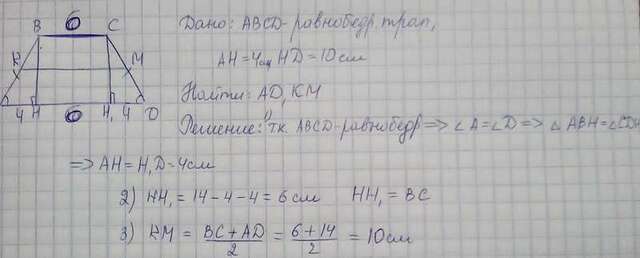 B 6 C
K M
4 H 6 H₁ 4 D
Дано: ABCD - равнобедр. трап,
AH = 4см HD = 10см
Найти: AD, KM
Решение: 1) т.к. ABCD - равнобедр => ∠A = ∠D => △ABH = △CDH
=> AH = H₁D = 4см
2) HH₁ = 14 - 4 - 4 = 6см HH₁ = BC
3) KM = BC + AD / 2 = 6 + 14 / 2 = 10см